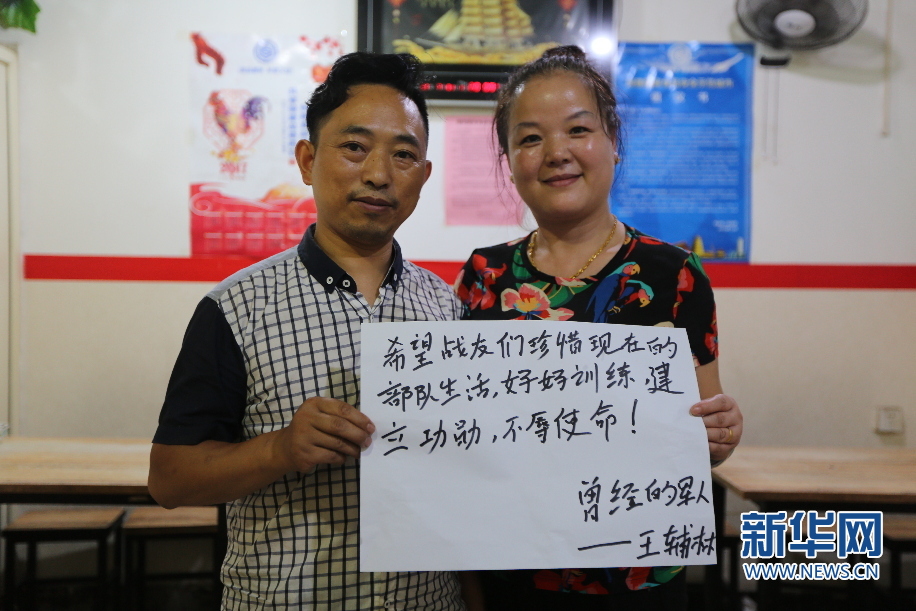 希望战友们珍惜现在的
部队生活,好好训练,建
立功勋,不辱使命!
曾经的军人
——王辅林
新华网
WWW.NEWS.CN